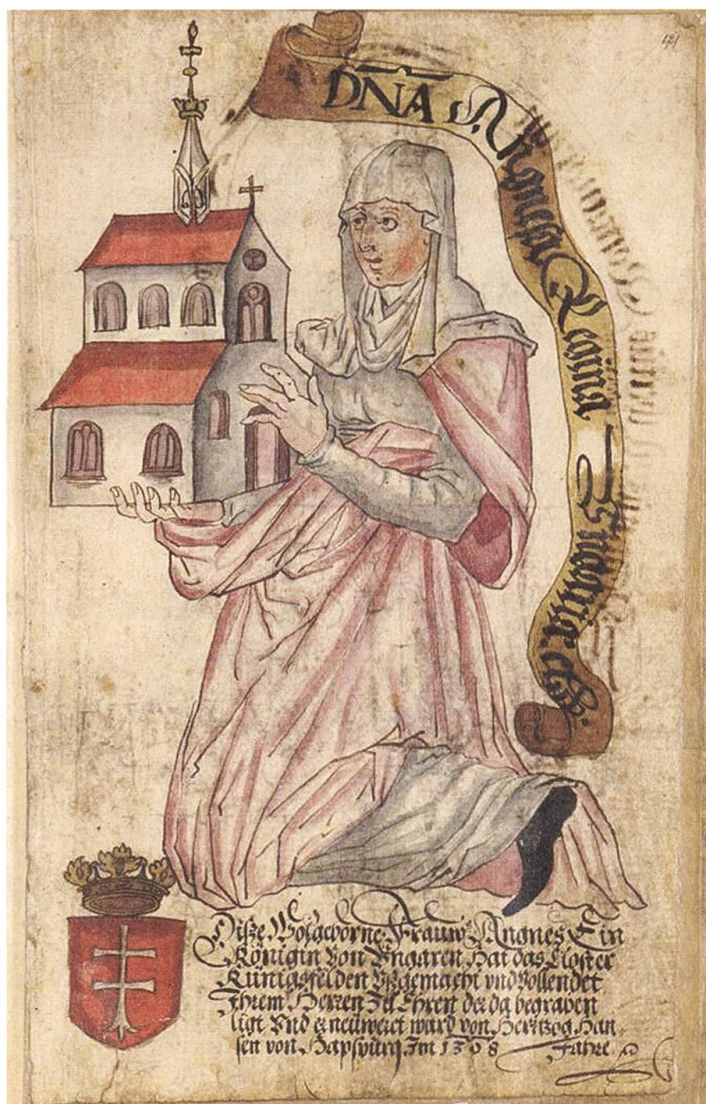 DÑA Agnesa Regina Vngariæ
Diße Wolgeborne Frauw Angnes Ein
Königin Von Vngaren Hat das Closter
Künigsfelden Vßgemacht vnd Vollendet
Ihrem Herren Zů Ehren der da begraben
ligt Vnd erneüweret ward von Hertzog Han-
sen von Hapspurg Im 1308 Jahre